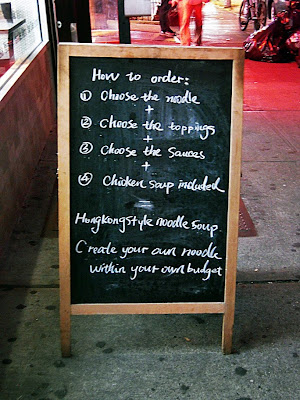 How to order:
① Choose the noodle
+
② Choose the toppings
+
③ Choose the Sauces
+
④ Chicken soup included
Hongkongstyle noodle soup
Create your own noodle
within your own budget